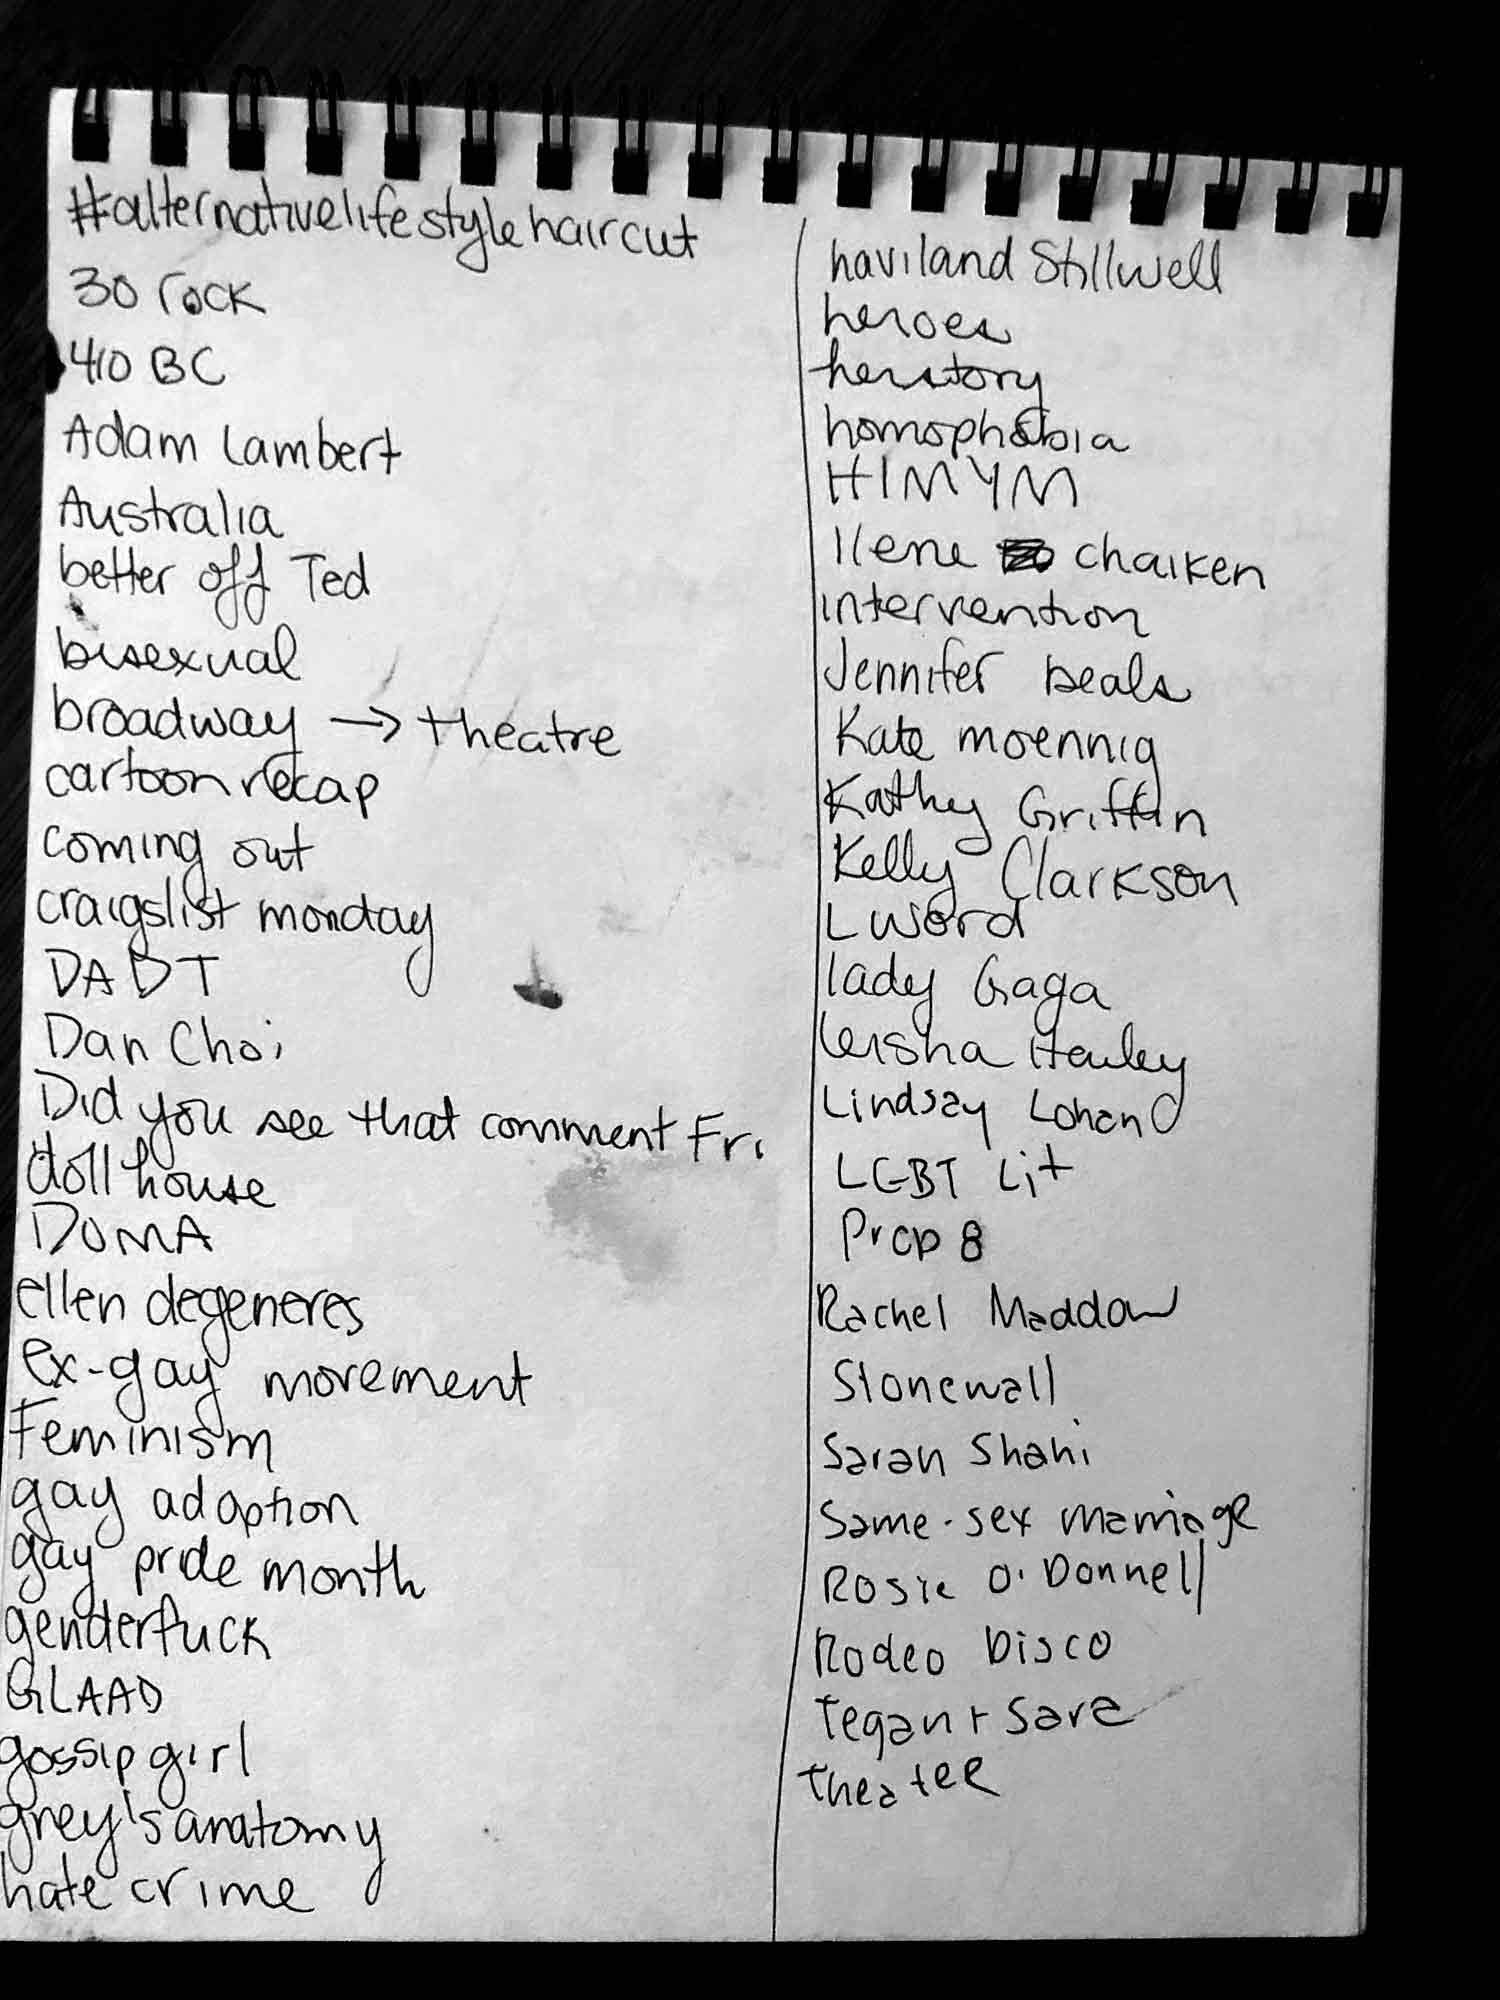 #alternativelifestylehaircut
30 rock
410 BC
Adam Lambert
Australia
better off Ted
bisexual
broadway → theatre
cartoon recap
coming out
craigslist monday
DADT
Dan Choi
Did you see that comment Fri
dollhouse
DOMA
ellen degeneres
ex-gay movement
Feminism
gay adoption
gay pride month
genderfuck
GLAAD
gossip girl
grey's anatomy
hate crime
haviland Stillwell
heroes
herstory
homophobia
HIMYM
Ilene chaiken
intervention
Jennifer beals
Kate moennig
Kathy Griffin
Kelly Clarkson
L word
lady Gaga
leisha Hailey
Lindsay Lohan
LGBT Lit
Prop 8
Rachel Maddow
Stonewall
Sarah Shahi
Same-sex marriage
Rosie O'Donnell
Rodeo Disco
Tegan + Sara
theater